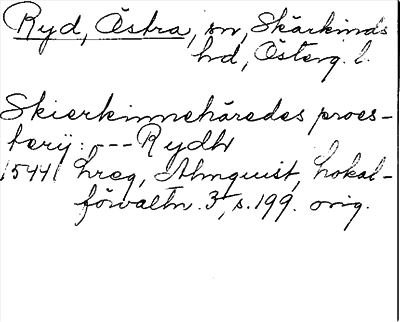 Ryd, Östra, sn, Skärkinds
hd, Österg. l.
Skierkinnehäredes proes-
terij: --- Rydh
1544 hreg, Almquist, Lokal-
förvaltn. 3, s. 199. orig.